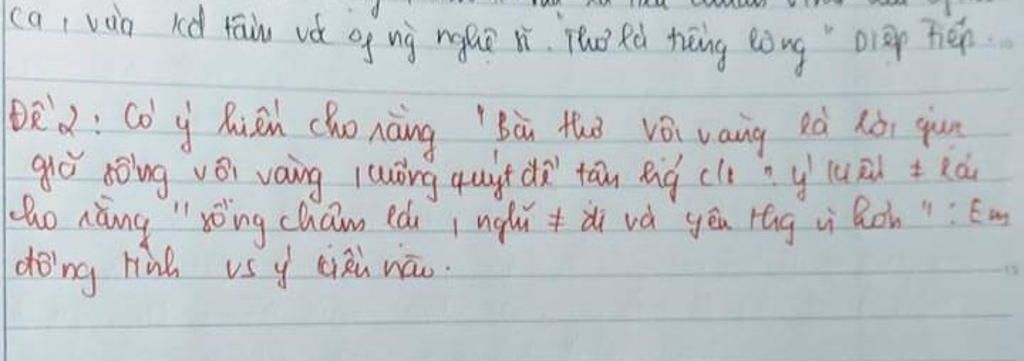 ca, vừa kđ tâm và of ng nghệ sĩ. Thơ là tiếng lòng" Diệp Tiếp...
Đề 2: Có ý kiến cho rằng "Bài thơ vội vàng là lời
giõ sống vội vàng, cuống quýt để tân hg c/s". ý kiến ≠ lại
cho rằng "sống chậm lại, nghĩ ≠ đi và yêu thg": Em
đồng tình vs ý kiến nào.